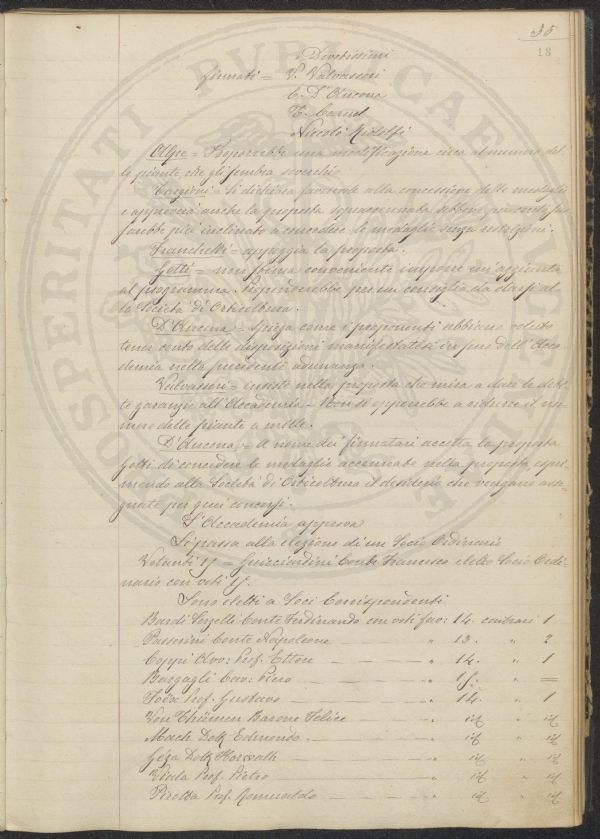 35
18
Devotissimi
Firmati = V. Valvassori
C. D'Ancona
E. Cornel
Niccolò Ridolfi
Alfre = Proporrebbe una modificazione circa al numero del
le piante che gli sembra soverchio.
Targioni = Si dichiara favorevole alla concessione delle medaglie
e approva anche la proposta sopraccennata sebbene per conto suo
sarebbe più inclinato a concedere le medaglie senza restrizioni.
Franchetti = appoggia la proposta.
Gotti = non stima conveniente imporre un'aggiunta
al programma. Propenderebbe per un consiglio da darsi al
la Società d'Orticoltura.
D'Ancona = Spiega come i proponenti abbiano voluto
tener conto delle disposizioni manifestatesi in seno dell'Acca
demia nella precedente adunanza.
Valvassori = insiste nella proposta che mira a dare le debi
te garanzie all'Accademia = Non si opporrebbe a ridurre il nu-
mero delle piante a mille.
D'Ancona = A nome dei firmatari accetta la proposta
Gotti di concedere le medaglie accennate nella proposta espri-
mendo alla Società di Orticoltura il desiderio che vengano asse-
gnate per quei concorsi.
L'Accademia approva
Si passa alla elezione di un Socio Ordinario
Votanti 15 = Guicciardini Conte Francesco eletto Socio Ordi-
nario con voti 15.
Sono eletti a Soci Corrispondenti
Bardi Serzelli Conte Ferdinando con voti fav: 14. contrari 1
Passerini Conte Napoleone — — — — " 13. " 2
Coppi Avv: Prof. Ettore — — — — " 14. " 1
Bargagli Cav: Piero — — — — " 15. " =
Foëx Prof. Gustavo — — — — " 14. " 1
Von Thümen Barone Felice — — — " id " id
Mach Dott Edmondo — — — — " id " id
Géza Dott Horwath — — — — " id " id
Viala Prof. Pietro — — — — " id " id
Pirotta Prof. Romualdo — — — — " id " id